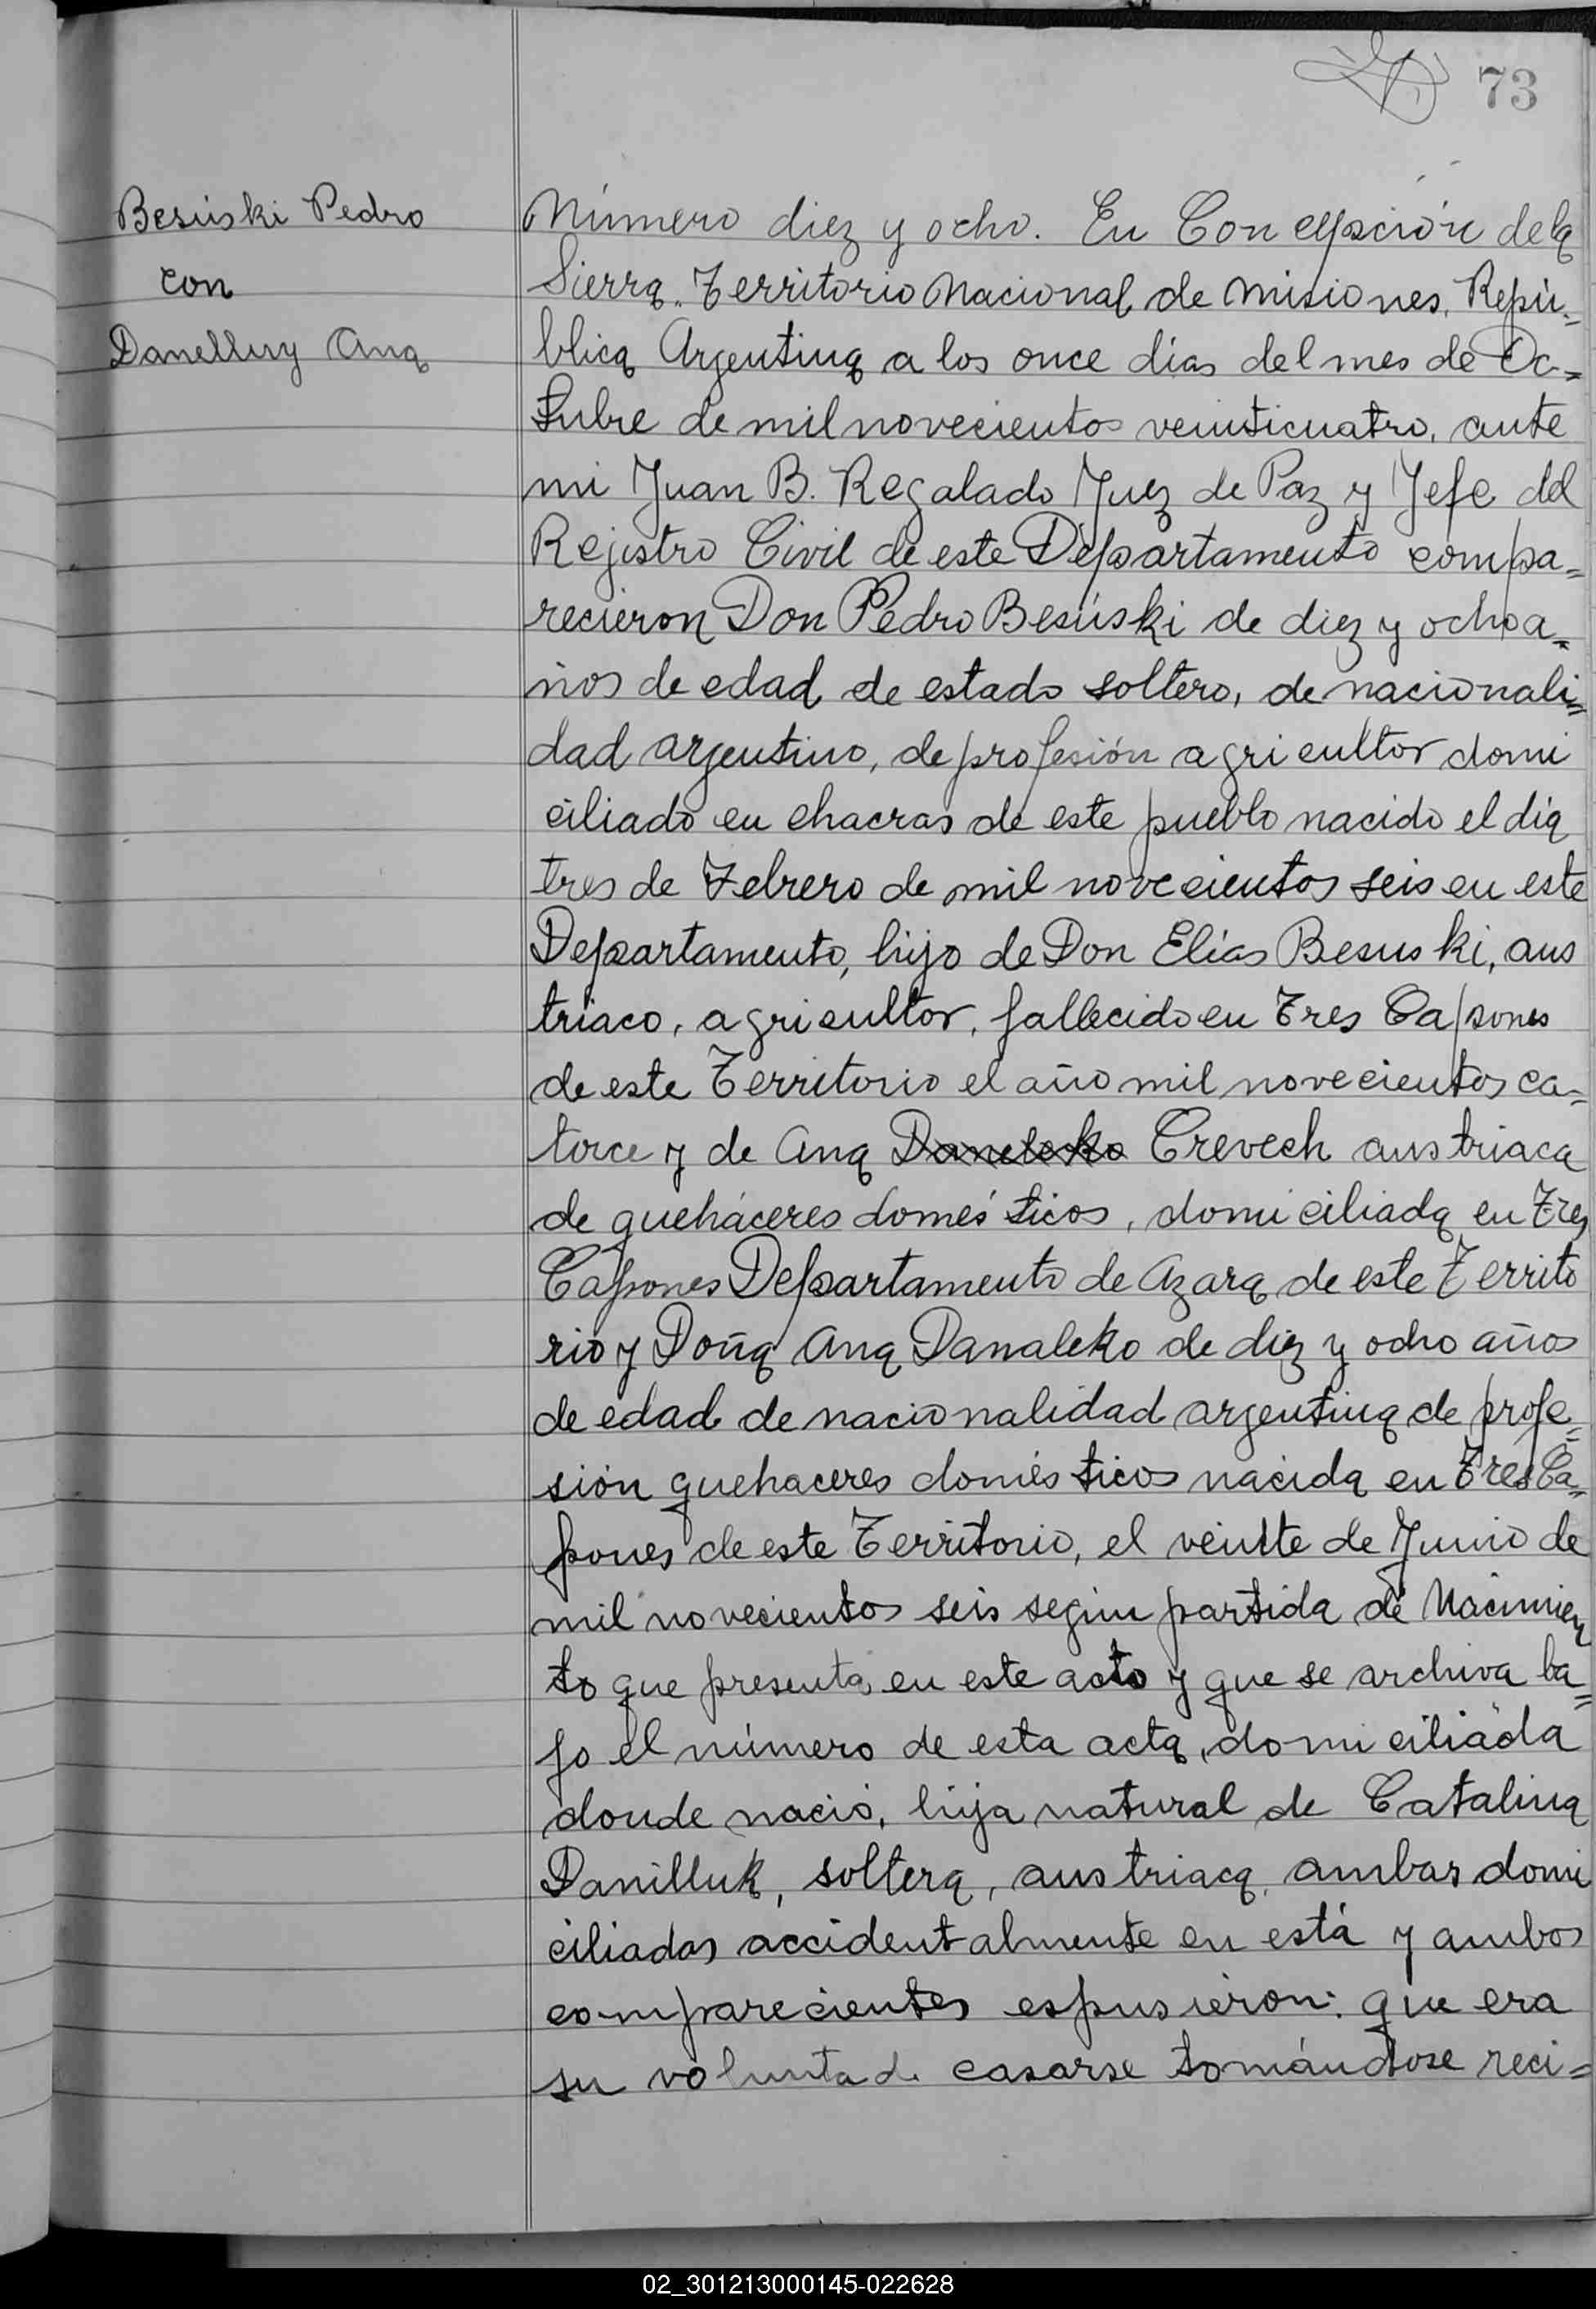 73
Besúski Pedro
con
Danelluy Ana
Número diez y ocho. En Concepción de la
Sierra. Territorio Nacional de Misiones, Repú=
blica Argentina a los once días del mes de Oc=
tubre de mil novecientos veinticuatro, ante
mi Juan B. Regalado Juez de Paz y Jefe del
Rejistro Civil de este Departamento compa=
recieron Don Pedro Besúski de diez y ocho a=
ños de edad de estado soltero, de nacionali=
dad argentino, de profesión agricultor domi
ciliado en chacras de este pueblo nacido el dia
tres de Febrero de mil novecientos seis en este
Departamento, hijo de Don Elías Besuski, aus
triaco, agricultor, fallecido en Tres Capones
de este Territorio el año mil novecientos ca=
torce y de Ana Daneleko Crevech austriaca
de queháceres domésticos, domiciliada en Tres
Capones Departamento de Azara de este Territo
rio y Doña Ana Danaleko de diez y ocho años
de edad de nacionalidad argentina de profe=
sión quehaceres domésticos nacida en Tres Ca=
pones de este Territorio, el veinte de Junio de
mil novecientos seis según partida de Nacimien
to que presenta en este acto y que se archiva ba=
jo el número de esta acta, domiciliada
donde nació, hija natural de Catalina
Danilluk, soltera, austriaca, ambas domi
ciliadas accidentalmente en está y ambos
comparecientes espusieron: que era
su voluntad casarse tomándose reci=
02_301213000145-022628